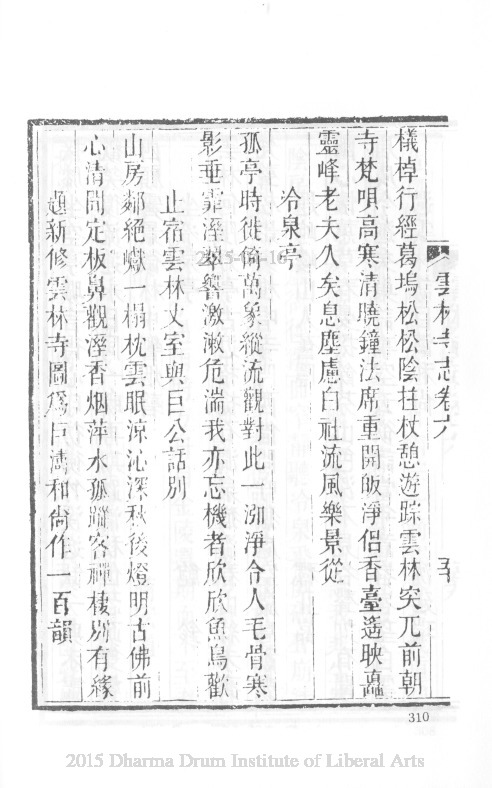 雲林寺志卷六
檥棹行經葛塢松松陰拄杖憩遊踪雲林突兀前朝
寺梵唄高寒清曉鐘法席重開皈淨侶香臺遙映矗
靈峰老夫久矣息塵慮白社流風樂景從
冷泉亭
孤亭時徙倚萬象縱流觀對此一泓淨令人毛骨寒
影垂霏溼翠響激漱危湍我亦忘機者欣欣魚鳥歡
止宿雲林丈室與巨公話別
山房鄰絕巘一榻枕雲眠涼沁深秋後燈明古佛前
心清聞定板鼻觀溼香烟萍水孤蹤客禪棲別有緣
題新修雲林寺圖爲巨濤和尚作一百韻
310
2015 Dharma Drum Institute of Liberal Arts